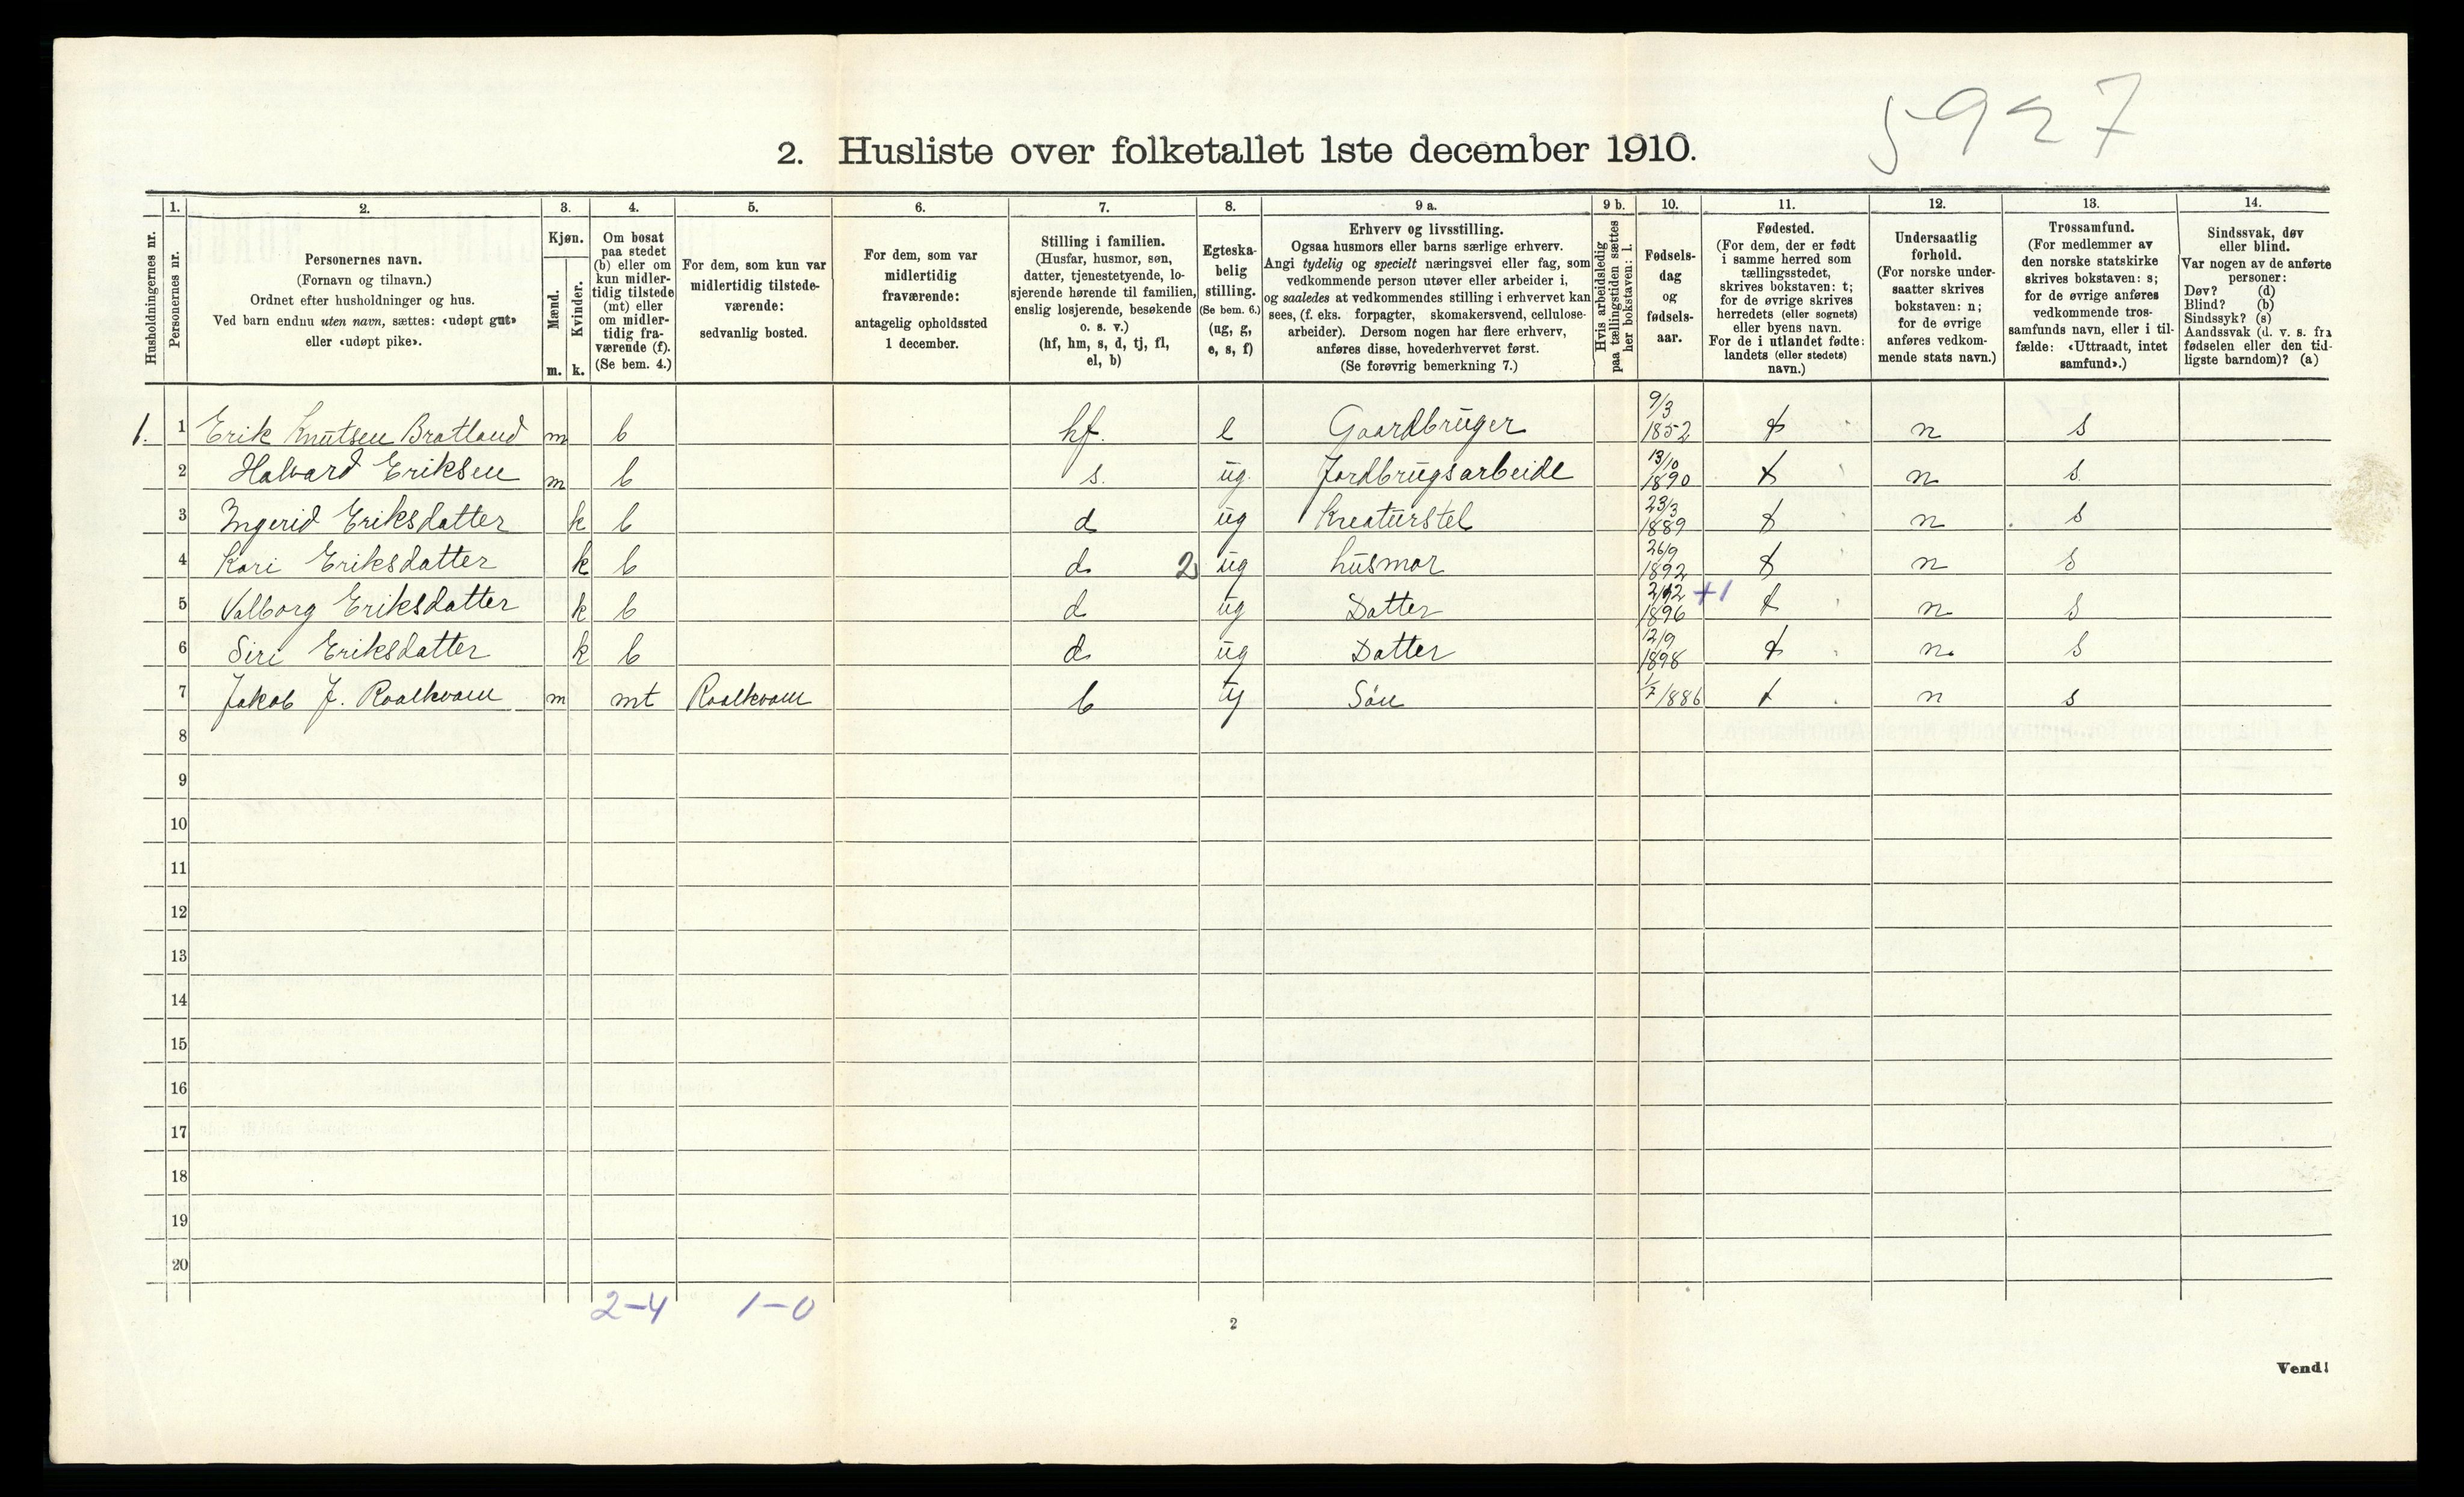 5927
2. Husliste over folketallet 1ste december 1910.
Husholdningernes nr.
1.
Personernes nr.
2.
Personernes navn.
(Fornavn og tilnavn.)
Ordnet efter husholdninger og hus.
Ved barn endnu uten navn, sættes: «udøpt gut»
eller «udøpt pike».
3.
Kjøn.
Mænd.
Kvinder.
m. k.
4.
Om bosat
paa stedet
(b) eller om
kun midler-
tidig tilstede
(mt) eller
om midler-
tidig fra-
værende (f).
(Se bem. 4.)
5.
For dem, som kun var
midlertidig tilstede-
værende:
sedvanlig bosted.
6.
For dem, som var
midlertidig
fraværende:
antagelig opholdssted
1 december.
7.
Stilling i familien.
(Husfar, husmor, søn,
datter, tjenestetyende, lo-
sjerende hørende til familien,
enslig losjerende, besøkende
o. s. v.)
(hf, hm, s, d, tj, fl,
el, b)
8.
Egteska-
belig
stilling.
(Se bem. 6.)
(ug, g,
e, s, f)
9 a.
Erhverv og livsstilling.
Ogsaa husmors eller barns særlige erhverv.
Angi tydelig og specielt næringsvei eller fag, som
vedkommende person utøver eller arbeider i,
og saaledes at vedkommendes stilling i erhvervet kan
sees, (f. eks. forpagter, skomakersvend, cellulose-
arbeider). Dersom nogen har flere erhverv,
anføres disse, hovederhvervet først.
(Se forøvrig bemerkning 7.)
9 b.
Hvis arbeidsledig
paa tællingstiden sættes
her bokstaven: l.
10.
Fødsels-
dag
og
fødsels-
aar.
11.
Fødested.
(For dem, der er født
i samme herred som
tællingsstedet,
skrives bokstaven: t;
for de øvrige skrives
herredets (eller sognets)
eller byens navn.
For de i utlandet fødte:
landets (eller stedets)
navn.)
12.
Undersaatlig
forhold.
(For norske under-
saatter skrives
bokstaven: n;
for de øvrige
anføres vedkom-
mende stats navn.)
13.
Trossamfund.
(For medlemmer av
den norske statskirke
skrives bokstaven: s;
for de øvrige anføres
vedkommende tros-
samfunds navn, eller i til-
fælde: «Uttraadt, intet
samfund».)
14.
Sindssvak, døv
eller blind.
Var nogen av de anførte
personer:
Døv? (d)
Blind? (b)
Sindssyk? (s)
Aandssvak (d. v. s. fra
fødselen eller den tid-
ligste barndom)? (a)
1. 1 Erik Knutsen Bratland m b hf. e Gaardbruger 9/3 1852 t n s
2 Halvard Eriksen m b s. ug. Jordbrugsarbeide 13/10 1890 t n s.
3 Ingerid Eriksdatter k b d ug Kreaturstel 23/3 1889 t n s
4 Kari Eriksdatter k b d 2 ug husmor 26/9 1892 t n s
5 Valborg Eriksdatter k b d ug Datter 2/12 1896 +1 t n s
6 Siri Eriksdatter k b d ug Datter 12/9 1898 t n. s
7 Jakob J. Roalkvam m mt Roalkvam b ug Søn 1/7 1886 t n s
8
9
10
11
12
13
14
15
16
17
18
19
20
2-4 1-0
2
Vend!